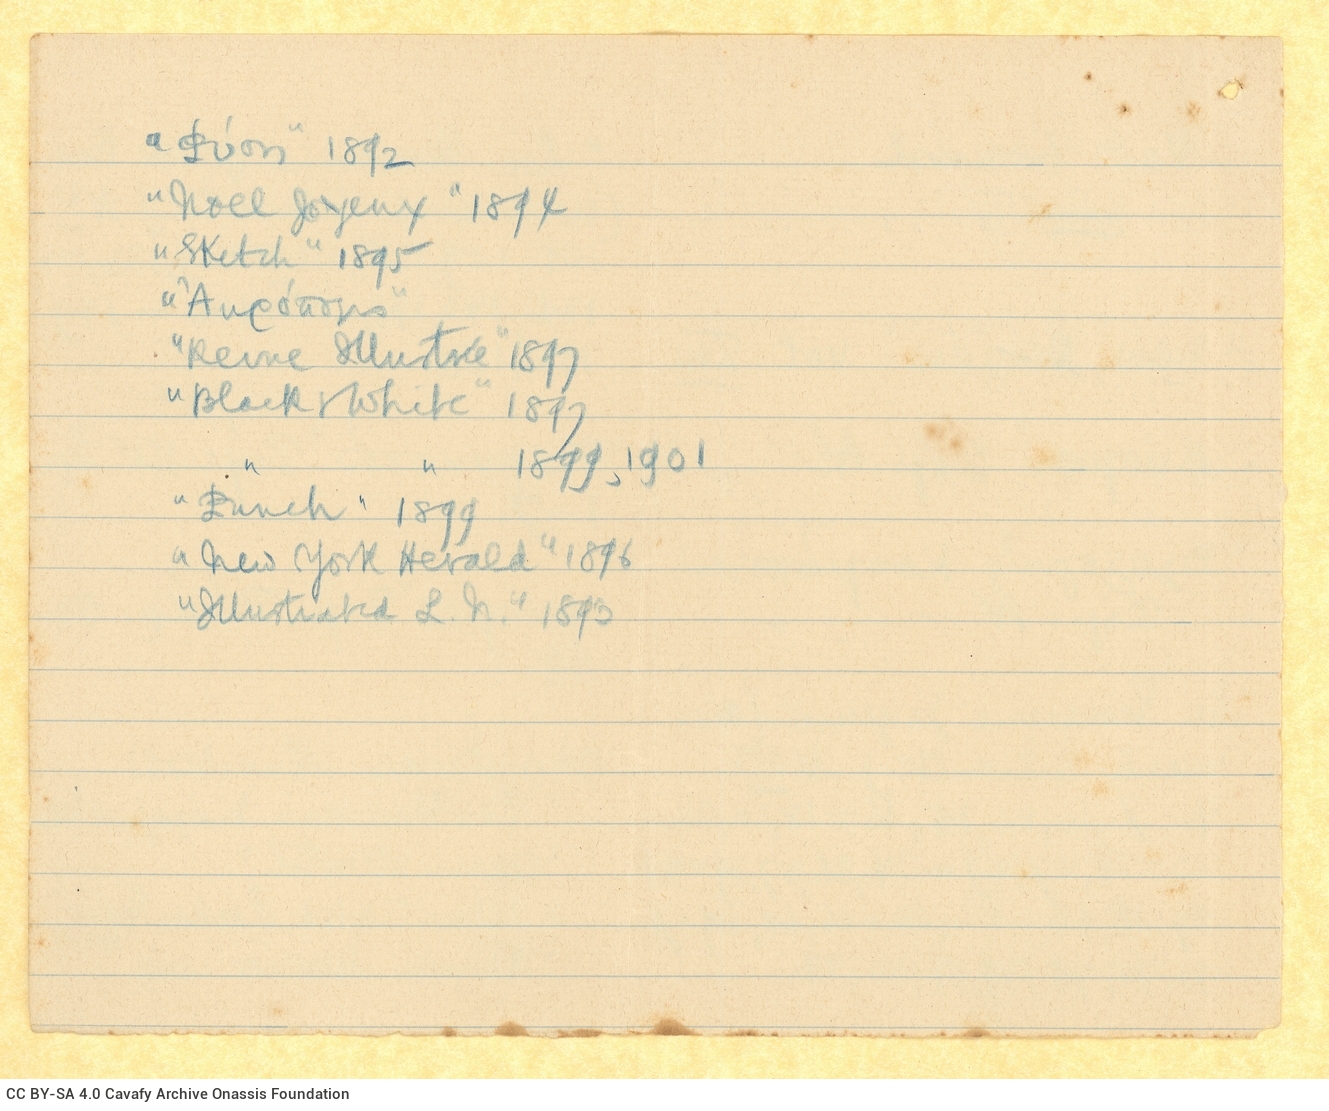 "Φύσις" 1892
"Noel Joyeux" 1894
"Sketch" 1895
"Ἀκρόπολις"
"Revue Illustrée" 1897
"Black & White" 1897
" " 1899, 1901
"Punch" 1899
"New York Herald" 1896
"Illustrated L. N." 1893
CC BY-SA 4.0 Cavafy Archive Onassis Foundation